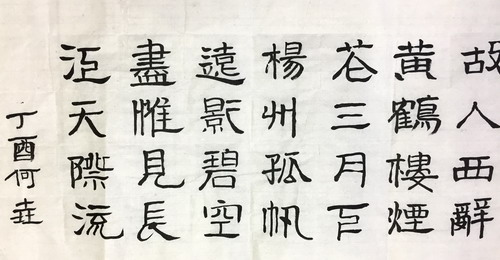 故人西辭
黄鶴樓煙
花三月下
楊州孤帆
遠影碧空
盡惟見長
江天際流
丁酉何垚